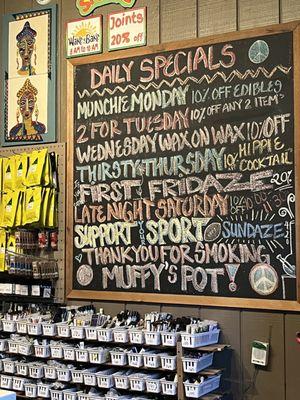 Joints
20% off
WAKE & BAKE
DAILY SPECIALS
MUNCHIE MONDAY 10% OFF EDIBLES
2 FOR TUESDAY 10% OFF ANY 2 ITEMS
WEDNESDAY WAX ON WAX 10% OFF
THIRSTY THURSDAY 10% HIPPIE COCKTAIL
FIRST FRIDAZE 20%
LATE NIGHT SATURDAY 10% OFF
SUPPORT YOUR SPORT SUNDAZE
THANK YOU FOR SMOKING
MUFFY'S POT